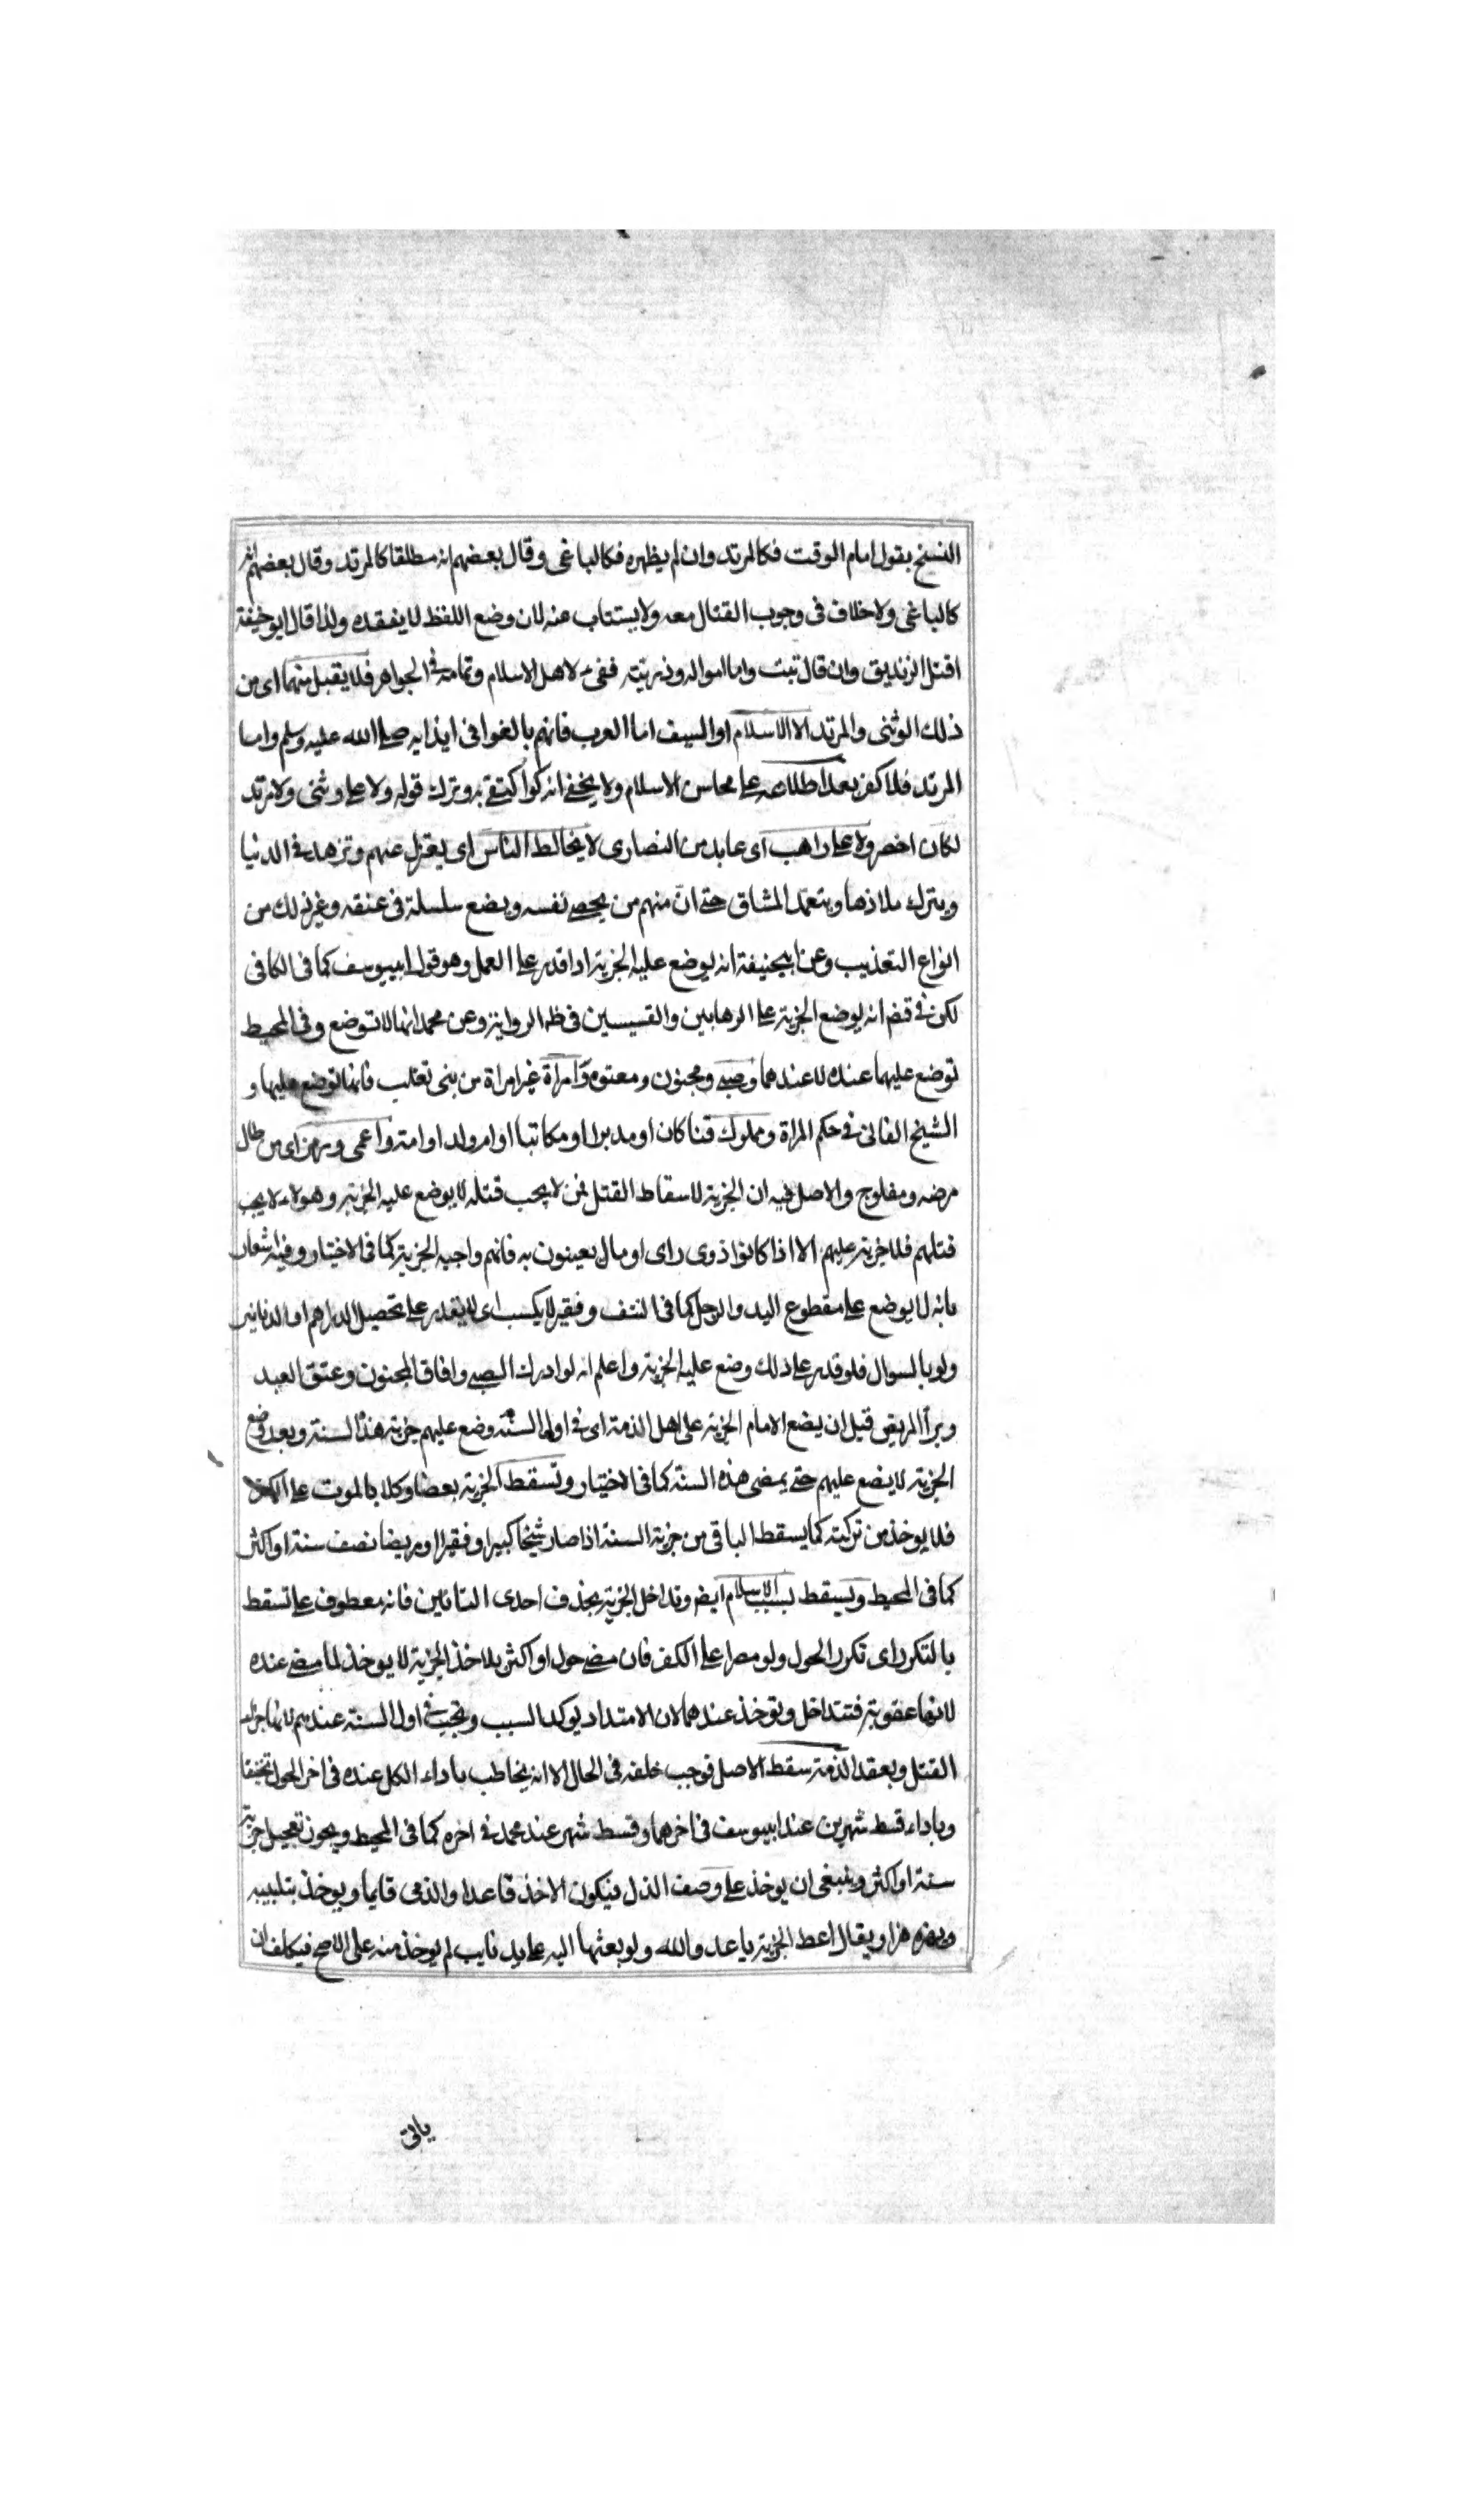 النسخ بقول امام الوقت فكالمرتد وان لم يظهره فكالباغى وقال بعضهم انه مطلقا كالمرتد وقال بعضهم انه
كالباغى ولا خلاف فى وجوب القتال معه ولا يستتاب عنه لان وضع اللفظ لا يفقده ولذا قال ابو حنيفة
اقتل الزنديق وان قال تبت واما امواله وذريته ففىء لاهل الاسلام وتمامه فى الجواهر فلا يقبل منهما اى من
ذلك الوثنى والمرتد الا الاسلام او السيف اما العرب فانهم بالغوا فى ايذايه صلى الله عليه وسلم واما
المرتد فلما كفر بعد اطلاعه على محاسن الاسلام ولا يخفى انه لو اكتفى به وترك قوله ولا على وثنى ولا مرتد
لكان اخصر ولا على راهب اى عابد من النصارى لا يخالط الناس اى يعتزل عنهم وتزهد فى الدنيا
ويترك ملاذها ويتعمد المشاق حتى ان منهم من يخصى نفسه ويضع سلسلة فى عنقه وغير ذلك من
انواع التعذيب وعن ابيحنيفة انه يوضع عليه الجزية اذا قدر على العمل وهو قول ابييوسف كما فى الكافى
لكن فى قض انه يوضع الجزية على الرهابين والقسيسين فى ظ الرواية وعن محمد انها لا توضع وفى المحيط
توضع عليهما عنده لا عندهما وصبى ومجنون ومعتوه وامراة غير امراة من بنى تغلب فانها توضع عليها و
الشيخ الفانى فى حكم المراة ومملوك قنا كان او مدبرا او مكاتبا او ام ولد او امته واعمى وزمن اى من طال
مرضه ومفلوج والاصل فيه ان الجزية لاسقاط القتل فمن لا يجب قتله لا يوضع عليه الجزية وهولاء لا يجب
قتلهم فلا جزية عليهم الا اذا كانوا ذوى راى او مال يعينون به فانهم واجبه الجزية كما فى الاختيار وفيه اشعار
بانه لا يوضع على مقطوع اليد والرجل كما فى النتف وفقير لا يكسب اى لا يقدر على تحصيل الدراهم او الدنانير
ولو بالسوال فلو قدر على ذلك وضع عليه الجزية واعلم انه لو ادرك الصبى وافاق المجنون وعتق العبد
وبرأ المريض قبل ان يضع الامام الجزية على اهل الذمة اى فى اول السنة وضع عليهم جزية هذه السنة وبعد وضع
الجزية لا يضع عليهم حتى يمضى هذه السنة كما فى الاختيار وتسقط الجزية بعضا وكلا بالموت على الكفر
فلا يوخذ من تركته كما يسقط الباقى من جزية السنة اذا صار شيخا كبيرا او فقيرا او مريضا نصف سنة او اكثر
كما فى المحيط ويسقط بسبب الاسلام ايض وتداخل الجزية بحذف احدى التائين فانه معطوف على تسقط
بالتكرر اى تكرر الحول ولو مصرا على الكفر فان مضى حول او اكثر بلا اخذ الجزية لا يوخذ لما مضى عنده
لانها عقوبة فتتداخل وتوخذ عندهما لان الامتداد يوكد السبب وتجب فى اول السنة عندهم لانها جزاء
القتل وبعقد الذمة سقط الاصل فوجب خلفه فى الحال الا انه يخاطب باداء الكل عنده فى اخر الحول تخفيفا
وباداء قسط شهرين عند ابييوسف فى اخرهما وقسط شهر عند محمد فى اخره كما فى المحيط ويجوز تعجيل جزية
سنة او اكثر وينبغى ان يوخذ على وصف الذل فيكون الاخذ قاعدا والذمى قايما ويوخذ بتلبيبه
ويهزه هزا ويقال اعط الجزية يا عدو الله ولو بعثها اليه على يد نايب لم يوخذ منه على الاصح فيكلف ان
ياتى